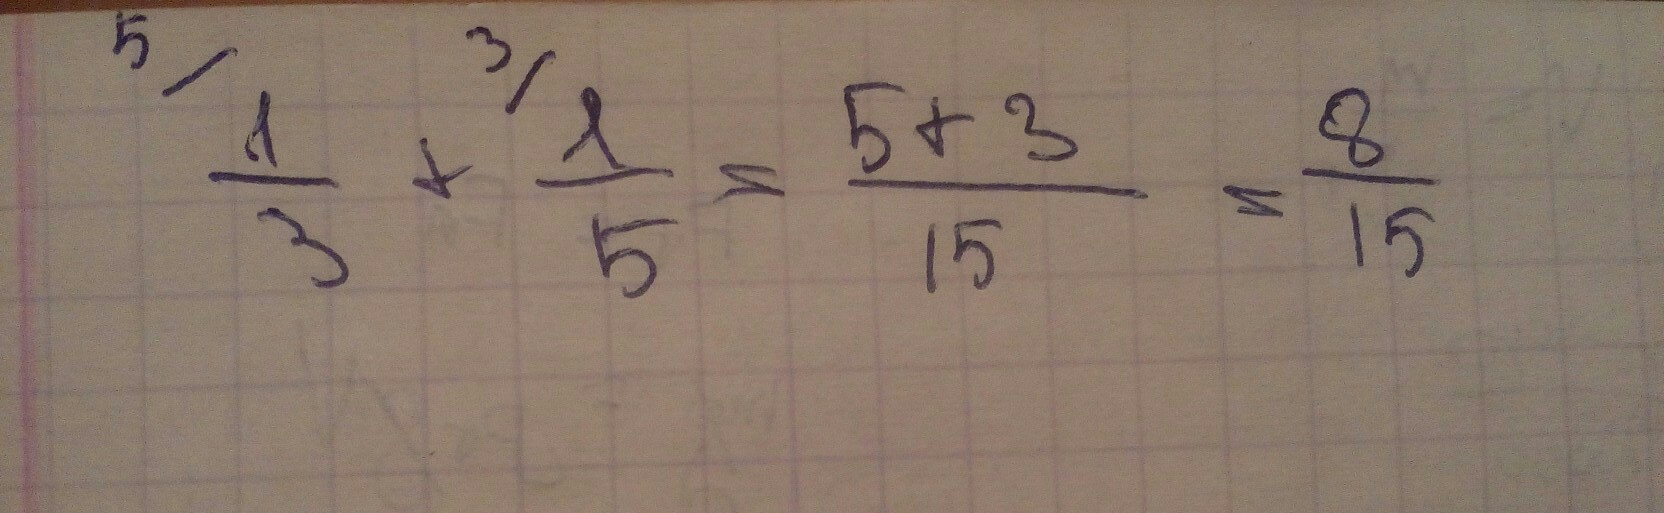 5/ 1/3 + 3/ 1/5 = 5+3/15 = 8/15